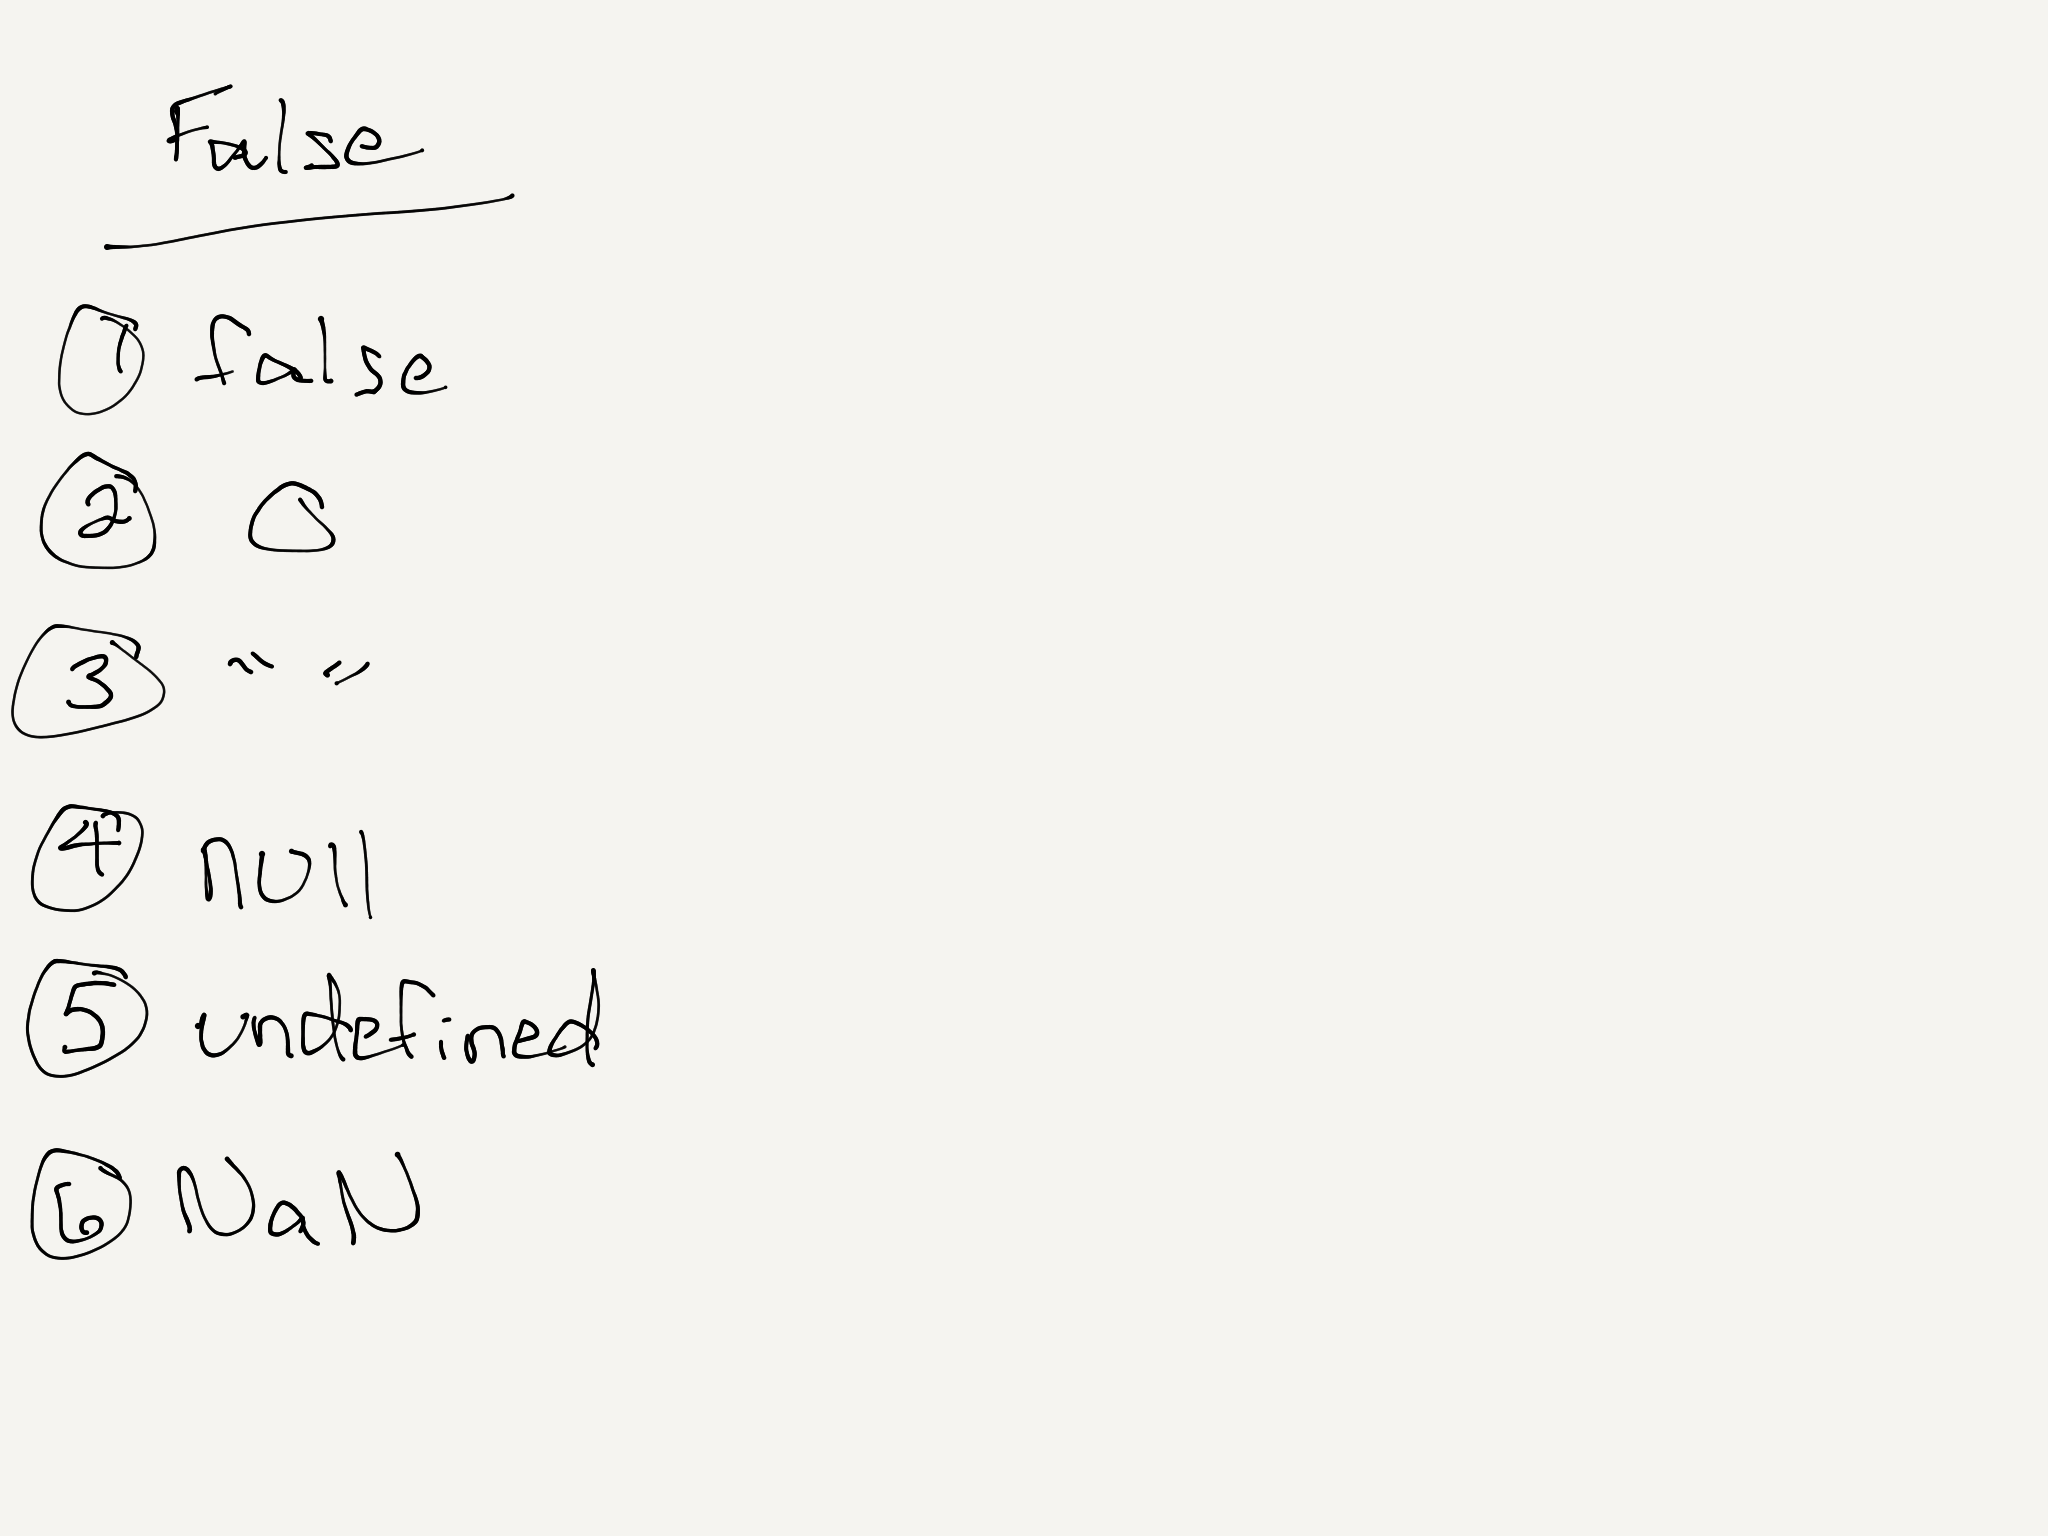 False
1 false
2 0
3 “ ”
4 null
5 undefined
6 NaN